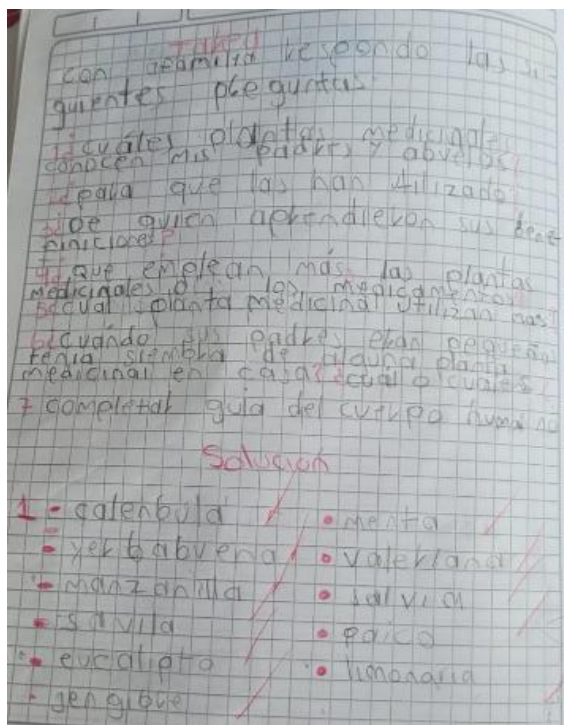 Tarea
con la familia respondo las si-
guientes preguntas
1¿cuáles plantas medicinales
conocen mis padres y abuelos?
2¿para que las han utilizado
3¿De quien aprendieron sus bene
ficios?
4¿que emplean más las plantas
medicinales o los medicamentos
5¿cual planta medicinal utilizan mas?
6¿cuándo sus padres eran pequeños
tenia siembra de alguna planta
medicinal en casa?¿cuál o cuales?
7 completar guia del cuerpo humano
Solución
1 - calenbula
• menta
- yerbabuena
• valeriana
- manzanilla
• salvia
- savila
• paico
- eucalipto
• limonaria
- gengibre